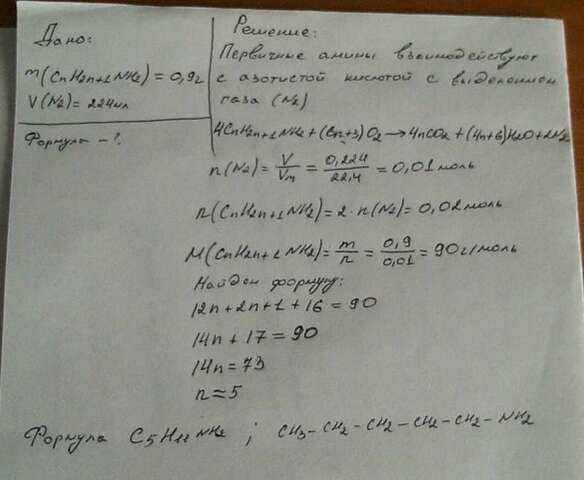 Дано:
m(CnH2n+1NH2) = 0,9г
V(N2) = 224мл
Формула - ?
Решение:
Первичные амины взаимодействуют
с азотистой кислотой с выделением
газа (N2)
4CnH2n+1NH2 + (6n+3)O2 → 4nCO2 + (4n+6)H2O + 2N2
n(N2) = V/Vм = 0,224/22,4 = 0,01 моль
n(CnH2n+1NH2) = 2·n(N2) = 0,02 моль
M(CnH2n+1NH2) = m/n = 0,9/0,01 = 90 г/моль
Найдем формулу:
12n + 2n + 1 + 16 = 90
14n + 17 = 90
14n = 73
n ≈ 5
Формула C5H11NH2 ; CH3-CH2-CH2-CH2-CH2-NH2